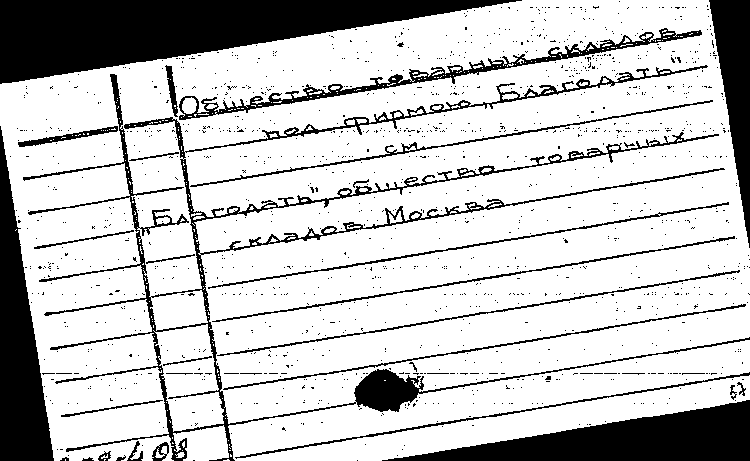 Общество товарных складов
под фирмою „Благодать"
см.
„Благодать", общество товарных
складов. Москва
67